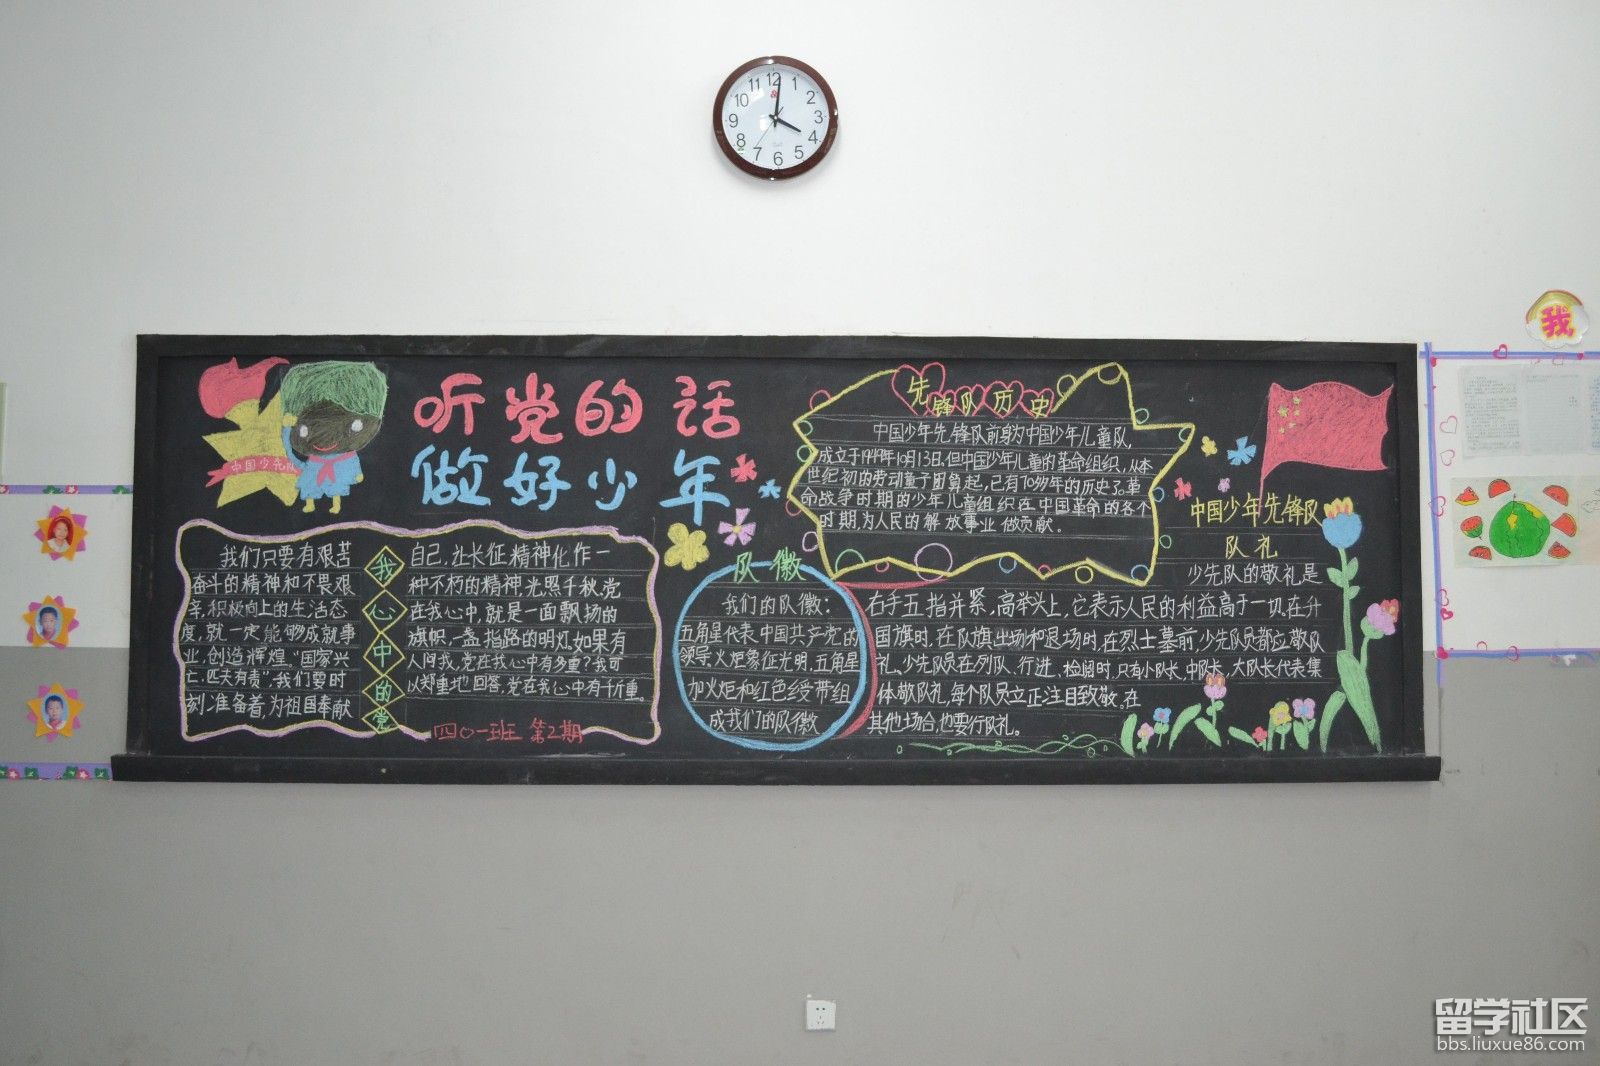 12
1
2
3
4
5
6
7
8
9
10
11
我
中国少先队
听党的话
做好少年
我们只要有艰苦
奋斗的精神和不畏艰
辛,积极向上的生活态
度,就一定能够成就事
业,创造辉煌。“国家兴
亡,匹夫有责”,我们要时
刻准备着,为祖国奉献
我心中的党
自己,让长征精神化作一
种不朽的精神,光照千秋。党
在我心中,就是一面飘扬的
旗帜,一盏指路的明灯。如果有
人问我,党在我心中有多重?我可
以郑重地回答,党在我心中有千斤重。
四〇一班 第2期
先锋队历史
中国少年先锋队前身为中国少年儿童队,
成立于1949年10月13日,但中国少年儿童的革命组织,从本
世纪初的劳动童子团算起,已有70多年的历史了。革
命战争时期的少年儿童组织在中国革命的各个
时期,为人民的解放事业做贡献。
队徽
我们的队徽:
五角星代表中国共产党的
领导,火炬象征光明,五角星
加火炬和红色绶带组
成我们的队徽
中国少年先锋队
队礼
少先队的敬礼是
右手五指并紧,高举头上,它表示人民的利益高于一切。在升
国旗时,在队旗出场和退场时,在烈士墓前,少先队员都应敬队
礼。少先队员在列队、行进、检阅时,只有小队长,中队长,大队长代表集
体敬队礼,每个队员立正注目致敬。在
其他场合,也要行队礼。
留学社区
bbs.liuxue86.com